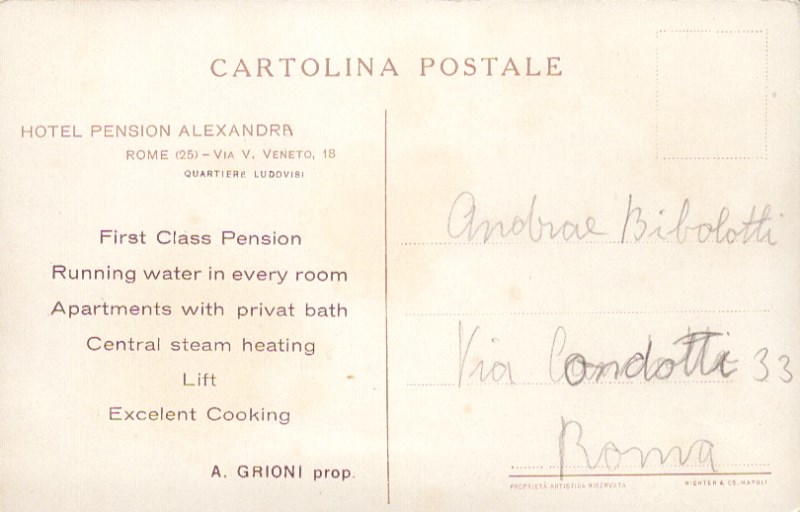 CARTOLINA POSTALE
HOTEL PENSION ALEXANDRA
ROME (25) – VIA V. VENETO, 18
QUARTIERE LUDOVISI
First Class Pension
Running water in every room
Apartments with privat bath
Central steam heating
Lift
Excelent Cooking
A. GRIONI prop.
Andrae Bibolotti
Via Condotti 33
Roma
PROPRIETÀ ARTISTICA RISERVATA
RICHTER & CO. NAPOLI